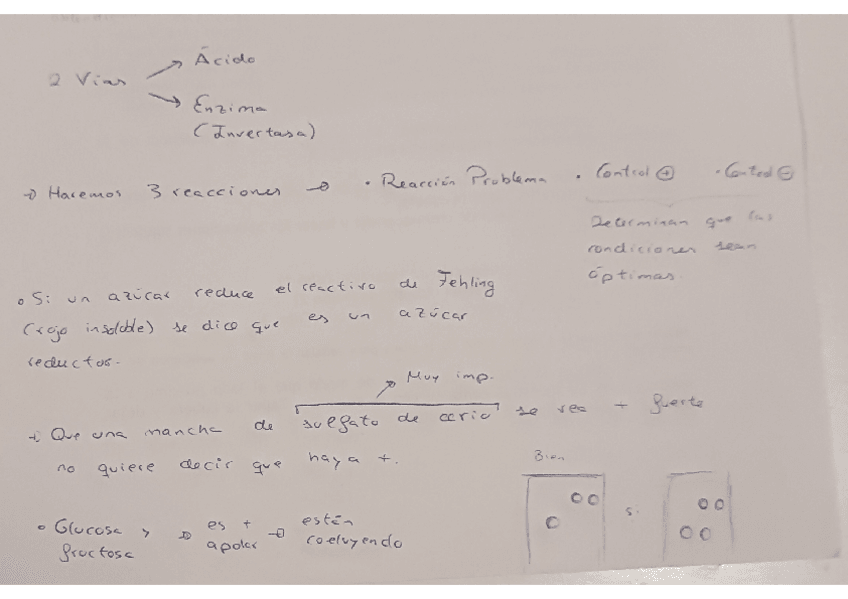 2 Vias
Ácido
Enzima
(Invertasa)
→ Hacemos 3 reacciones → • Reacción Problema • Control ⊕ • Control ⊖
Determinan que las
condiciones sean
óptimas.
• Si un azúcar reduce el reactivo de Fehling
(rojo insoluble) se dice que es un azúcar
reductor.
Muy imp.
→ Que una mancha de sulfato de cerio se vea + fuerte
no quiere decir que haya +.
Bien
• Glucosa y → es + → están
fructosa apolar coeluyendo